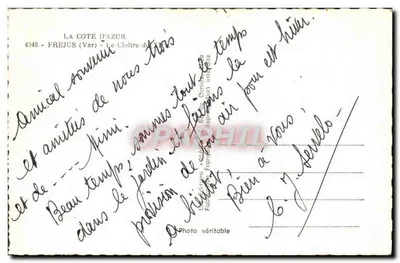 LA COTE D'AZUR
4346 - FREJUS (Var) - Le Cloître
Amical souvenir
et amitiés de nous trois
et de --- Mimi.
Beau temps, sommes tout le temps
dans le jardin et faisons la
provision de bon air pour cet hiver.
A bientôt,
Bien à vous!
Photo véritable